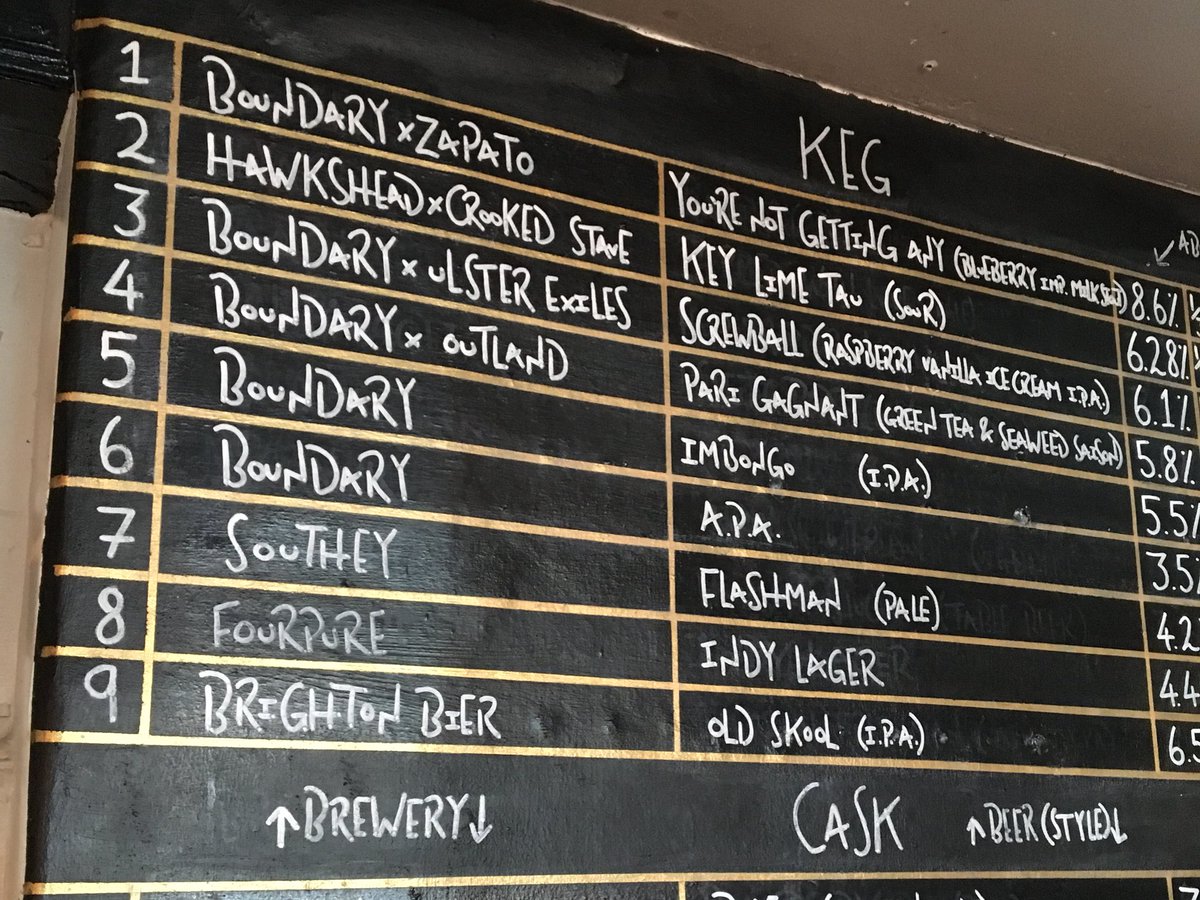 KEG
↙ AB
1 BOUNDARY x ZAPATO YOU'RE NOT GETTING ANY (BLUEBERRY IMP. MILK STOUT) 8.6%
2 HAWKSHEAD x CROOKED STAVE KEY LIME TAU (SOUR) 6.28%
3 BOUNDARY x ULSTER EXILES SCREWBALL (RASPBERRY VANILLA ICE CREAM I.P.A.) 6.1%
4 BOUNDARY x OUTLAND PARI GAGNANT (GREEN TEA & SEAWEED SAISON) 5.8%
5 BOUNDARY IMBONGO (I.P.A.) 5.5%
6 BOUNDARY A.P.A. 3.5%
7 SOUTHEY FLASHMAN (PALE) 4.2
8 FOURPURE INDY LAGER 4.4
9 BRIGHTON BIER OLD SKOOL (I.P.A.) 6.5
↑BREWERY↓ CASK ↑BEER (STYLE)↓